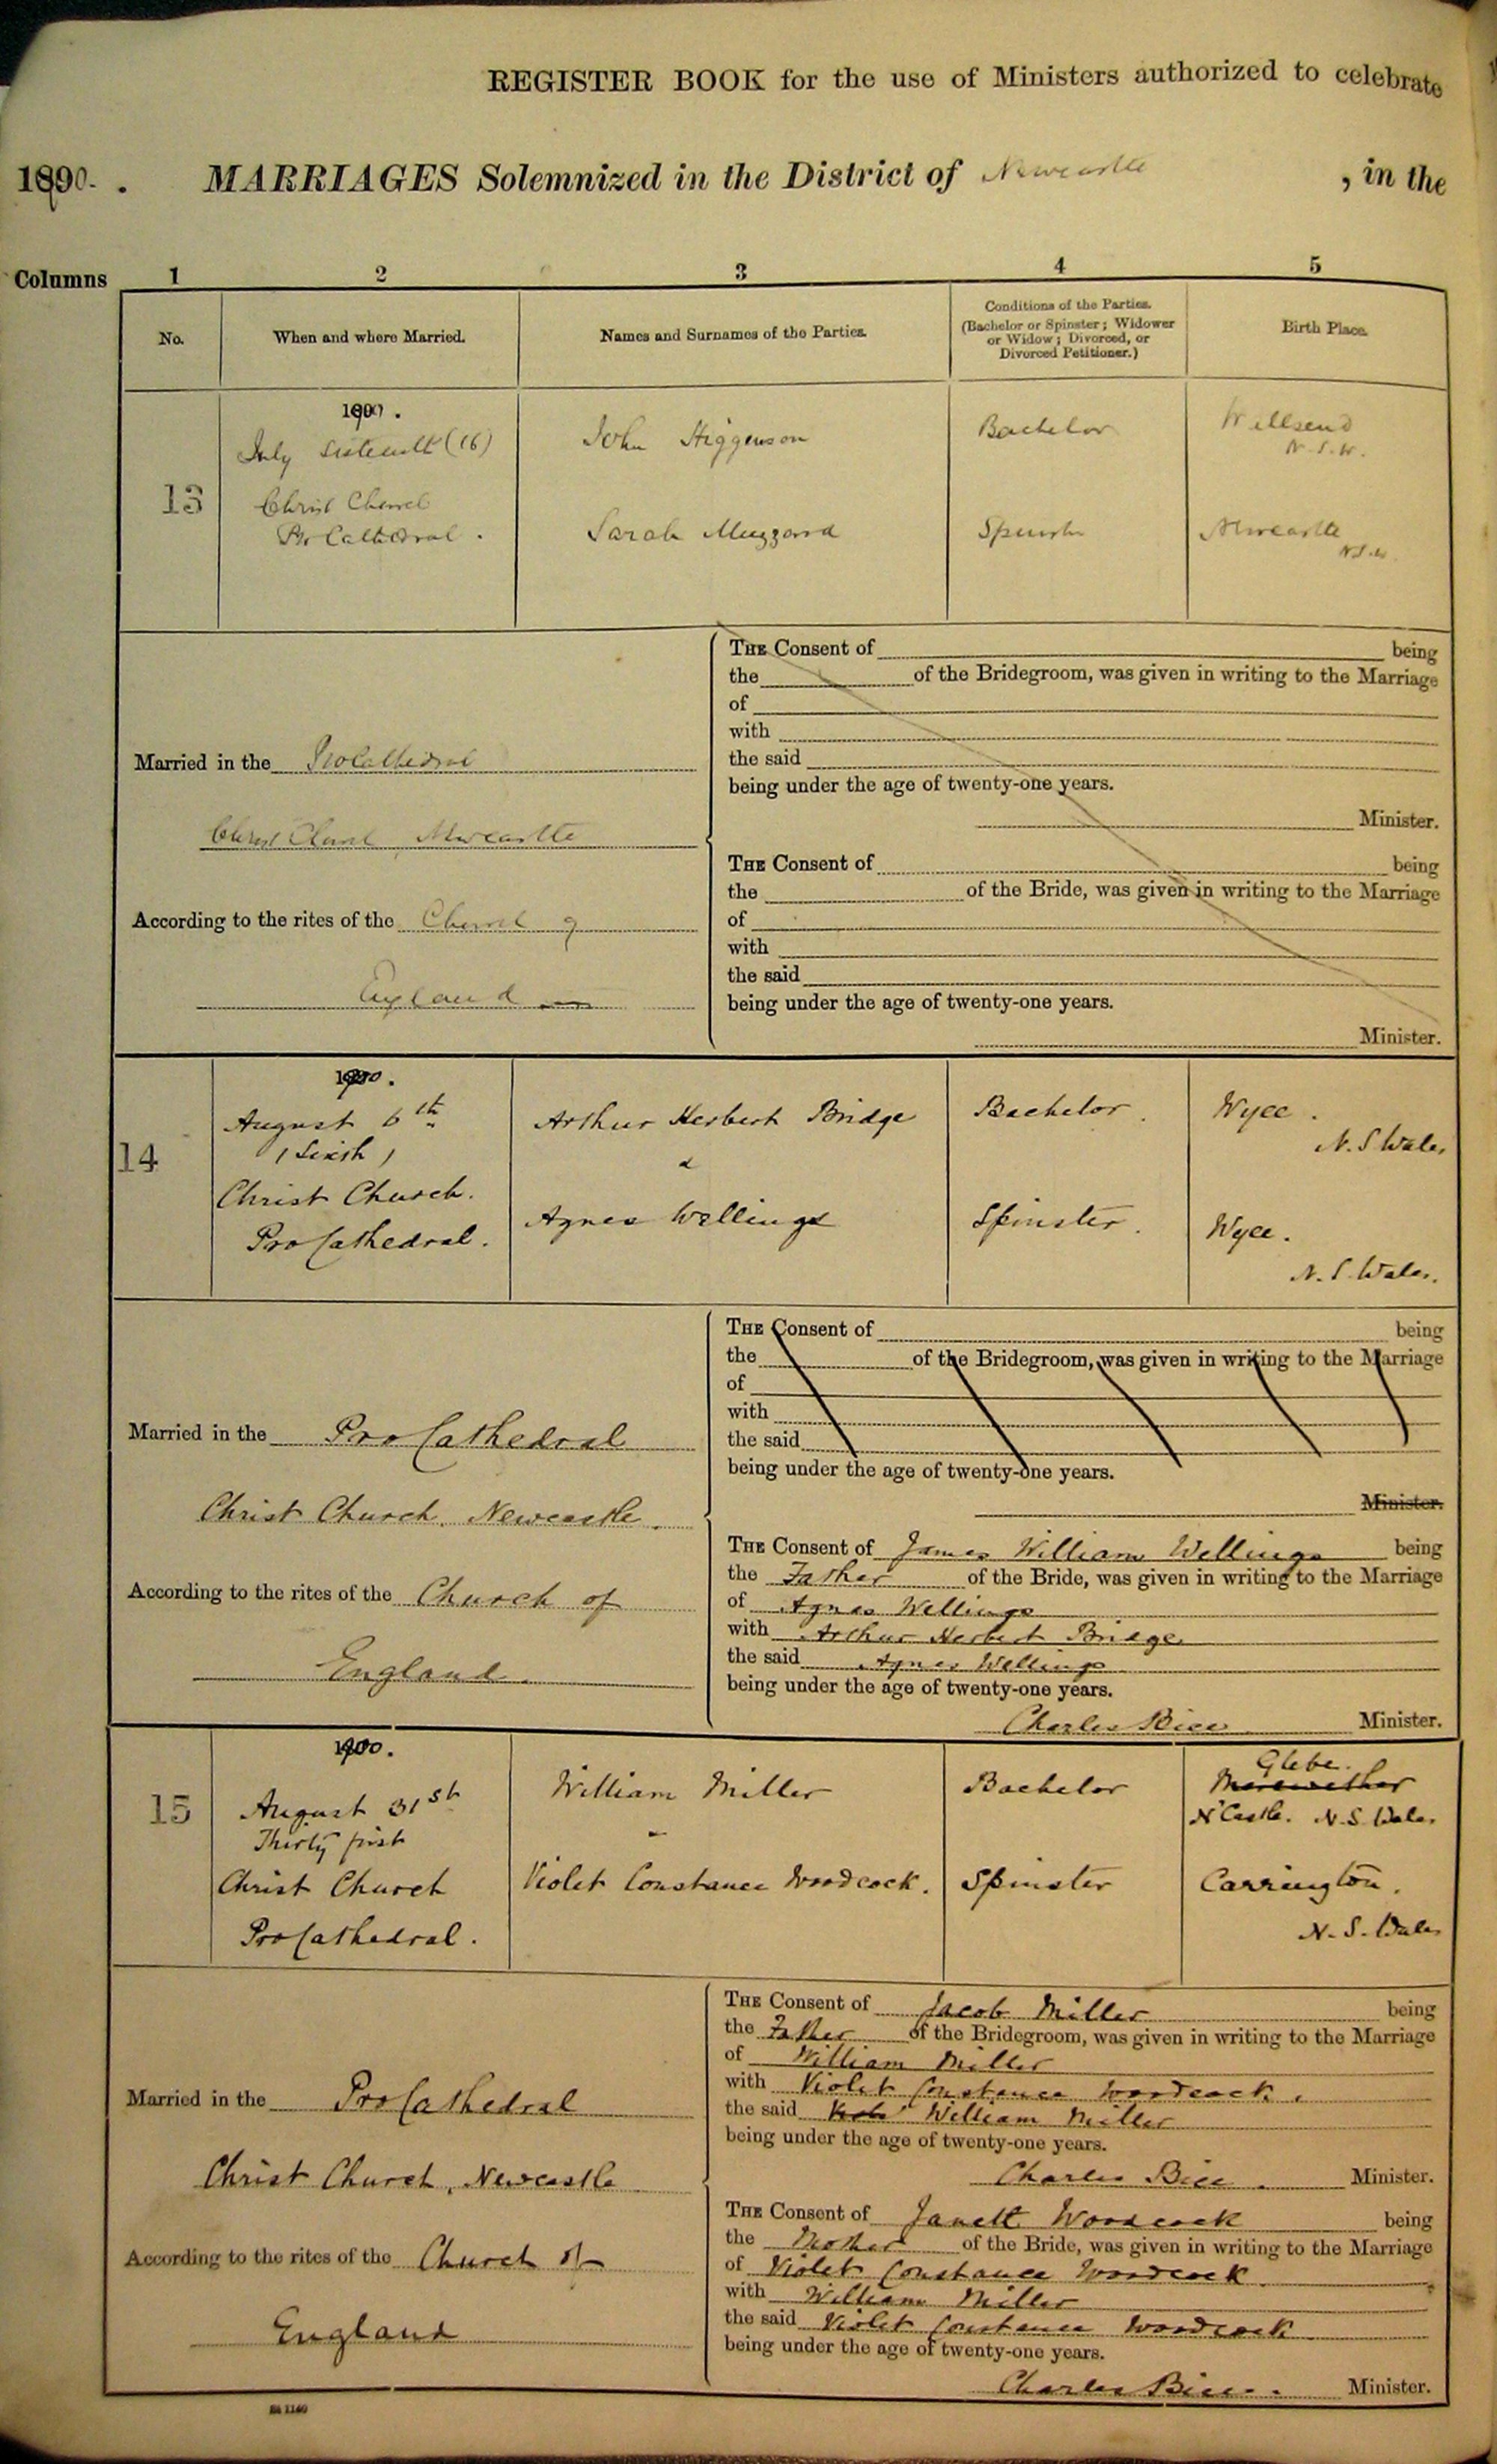 REGISTER BOOK for the use of Ministers authorized to celebrate
1890. . MARRIAGES Solemnized in the District of Newcastle , in the
Columns 1 2 3 4 5
No. When and where Married. Names and Surnames of the Parties. Conditions of the Parties. (Bachelor or Spinster; Widower or Widow; Divorced, or Divorced Petitioner.) Birth Place.
1900.
July Sixteenth (16) John Higgenson Bachelor N.S.W.
13
Christ Church
Pro Cathedral. Sarah Spinster Newcastle
N.S.W.
THE Consent of being
the of the Bridegroom, was given in writing to the Marriage
of
with
the said
being under the age of twenty-one years.
Minister.
Married in the ProCathedral
Christ Church, Newcastle
According to the rites of the Church of
England
THE Consent of being
the of the Bride, was given in writing to the Marriage
of
with
the said
being under the age of twenty-one years.
Minister.
1900.
August 6th Arthur Herbert Bridge Bachelor. Wyee.
(Sixth) & N.S Wales
14
Christ Church. Agnes Wellings Spinster. Wyee.
Pro Cathedral. N.S. Wales.
THE Consent of being
the of the Bridegroom, was given in writing to the Marriage
of
with
the said
being under the age of twenty-one years.
Minister.
Married in the Pro Cathedral
Christ Church, Newcastle.
According to the rites of the Church of
England.
THE Consent of James William Wellings being
the Father of the Bride, was given in writing to the Marriage
of Agnes Wellings
with Arthur Herbert Bridge
the said Agnes Wellings
being under the age of twenty-one years.
Charles Bice Minister.
1900. Glebe.
August 31st William Miller Bachelor Merewether
15 Thirty first N'Castle. N.S. Wales.
Christ Church Violet Constance Woodcock. Spinster Carrington.
Pro Cathedral. N.S. Wales
THE Consent of Jacob Miller being
the Father of the Bridegroom, was given in writing to the Marriage
of William Miller
with Violet Constance Woodcock.
the said William Miller
being under the age of twenty-one years.
Charles Bice. Minister.
Married in the Pro Cathedral
Christ Church, Newcastle
According to the rites of the Church of
England
THE Consent of Janett Woodcock being
the Mother of the Bride, was given in writing to the Marriage
of Violet Constance Woodcock.
with William Miller
the said Violet Constance Woodcock
being under the age of twenty-one years.
Charles Bice. Minister.